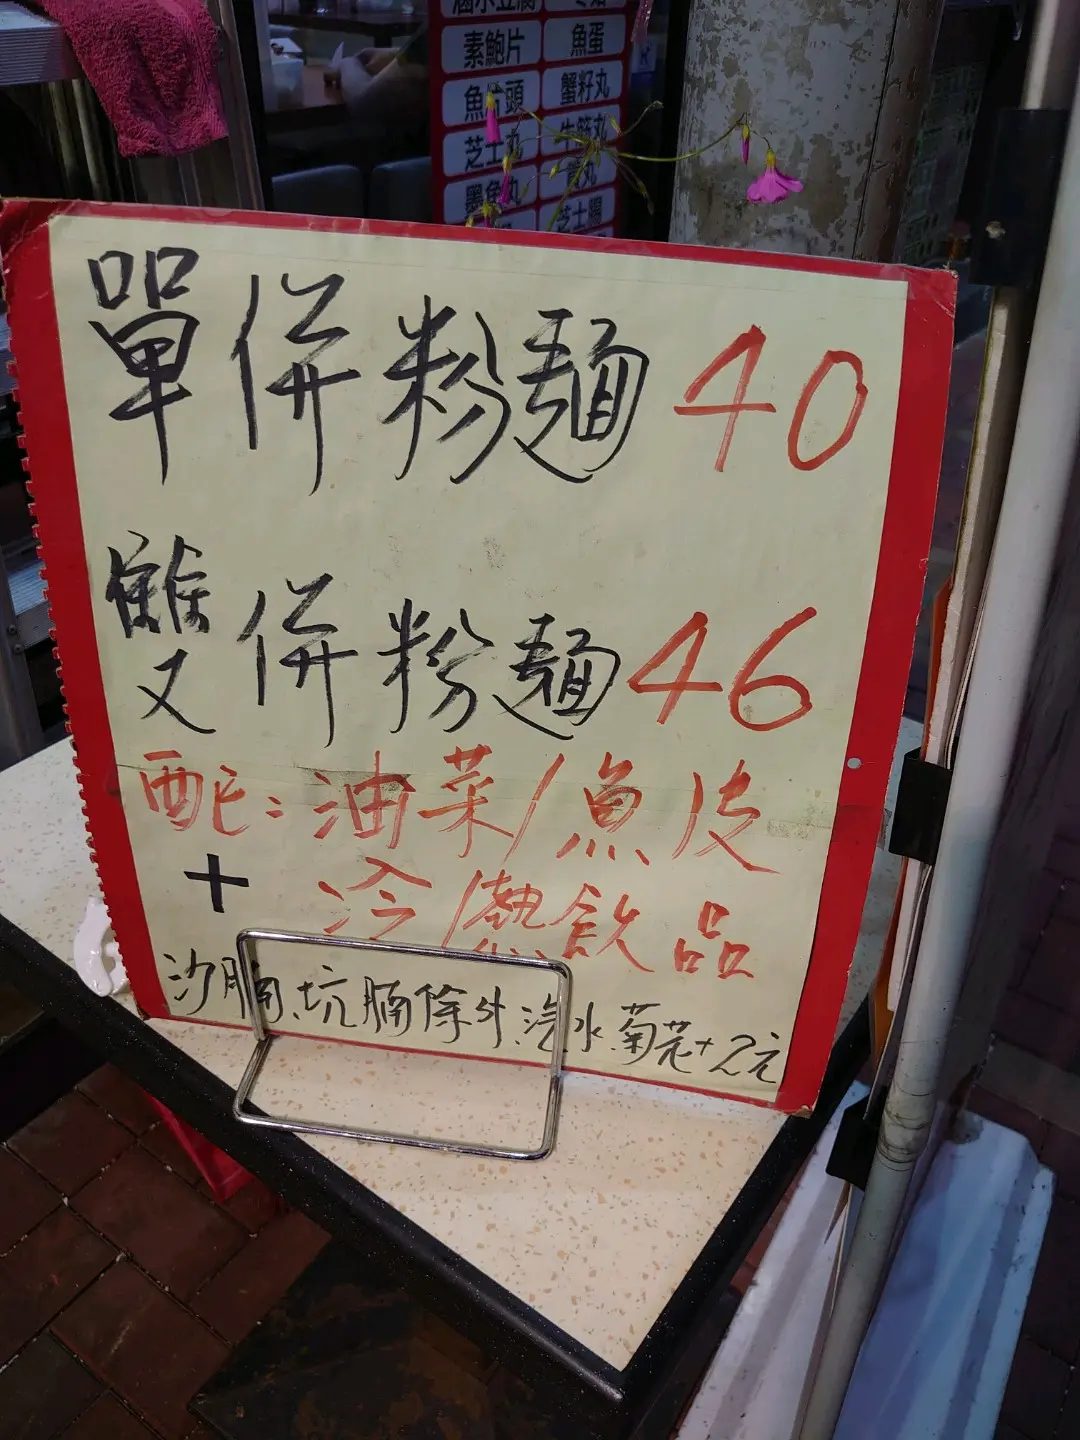 素鮑片 魚蛋
蟹籽丸
芝士丸 牛筋丸
墨魚丸
芝士腸
單併粉麵 40
雙併粉麵 46
配:油菜/魚皮
+ 冷/熱飲品
沙腩、坑腩除外、汽水、菊花+2元